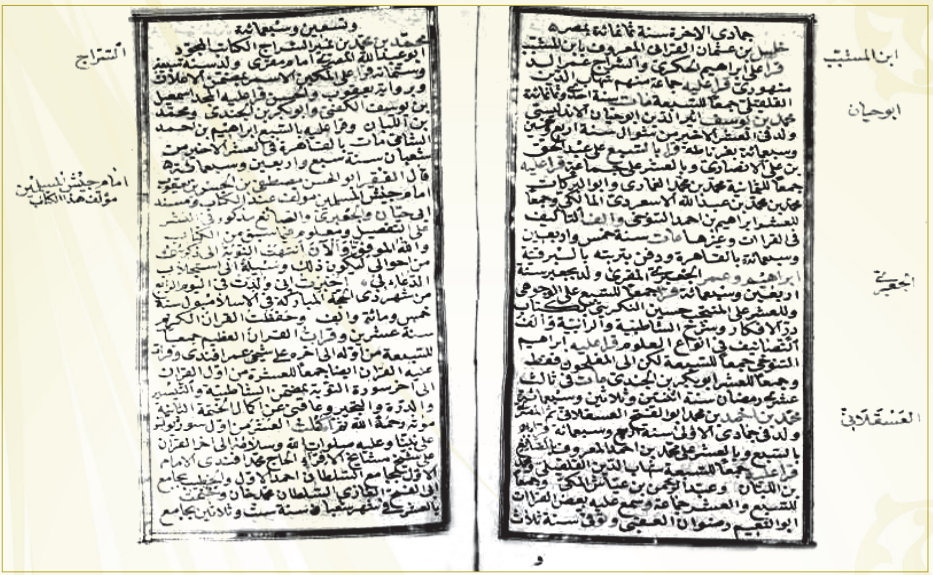 جمادى الاخرة سنة ثمانمائة بمصر
خليل بن عثمان القرافى المعروف بابن المشبب
قرأ على ابراهيم الحكرى والسراج عمر الد
منهورى قرأ عليه جماعة منهم شهاب الدين
القلقيلى جمعا للسبعة مات سنة احدى وثمانمائة
محمد بن يوسف اثير الدين ابوحيان الاندلسى
ولد فى العشر الاخير من شوال سنة اربع وخمسين
وسبعمائة بغرناطة قرأ بالسبع على عبد الحق
بن على الانصارى وبالعشر على جماعة قرأ عليه
جمعا للثمانية محمد بن محمد الغمارى وابو البركات
محمد بن محمد بن عبد الله الاسعردى المالكى وجمعا
للعشر ابراهيم بن احمد التنوخى والف التآليف
فى القرآت وغيرها مات سنة خمس واربعين
وسبعمائة بالقاهرة ودفن بتربته بالبرقية
ابراهيم بن عمر الجعبرى المقرى ولد بجعبر سنة
اربعين وستمائة قرأ جمعا للسبع على الوجوهى
وللعشر على المنتخب حسين التكريتى بكتاب
درّ الافكار وشرح الشاطبية والرائية والف
التصانيف فى انواع العلوم قرأ عليه ابراهيم
التنوخى جمعا للسبعة لكن الى المفلحون فقط
وجمعا للعشر ابو بكر بن الجندى مات فى ثالث
عشر رمضان سنة اثنتين وثلاثين وسبعمائة
محمد بن احمد بن محمد ابو الفتح العسقلانى
ولد فى جمادى الاولى سنة اربع وسبعمائة قرأ
بالسبع وبالعشر على محمد بن احمد المعروف بالصايغ
قرأ عليه جمعا للسبعة شهاب الدين القلقيلى ومحمد
بن اللبان وعبد الرحمن بن عياش المكى وجمعا
للسبع والعشر جماعة وسمع عليه بعض القرآن
ابو النعيم رضوان العقبى وتوفى سنة ثلاث
ابن المشبب
ابوحيان
الجعبرى
العسقلانى
و
وتسعين وسبعمائة
محمد بن محمد بن نمير السراج الكاتب المجود
ابو عبد الله المصرى امام ومقرى ولد سنة سبعين
وستمائة قرأ على المكين الاسمر
وبرواية يعقوب والحسن قرأ عليه المجد اسمعيل
بن يوسف الكفتى وابو بكر بن الجندى ومحمد
بن اللبان وقرأ عليه بالسبع ابراهيم بن احمد
الشامى مات بالقاهرة فى العشر الاخير من
شعبان سنة سبع واربعين وسبعمائة
قال الفقير ابو الحسن مصطفى بن الحسن بن يعقوب
امام جيش المسلمين مؤلف هذا الكتاب ومسند
ابى حيان والجعبرى والصائغ مذكور فى العشر
على التفصيل ومعلوم مما سبق من الكتاب
والله الموفق والآن انتهت النوبة الى ذكر شئ
من احوالى ليكون ذلك وسيلة الى استجلاب
الدعاء لى اخبرت انى ولدت فى اليوم الرابع
من شهر ذى الحجة المباركة فى الاسلامبول سنة
خمس ومائة والف وحفظت القرآن الكريم
سنة عشرين وقرأت القرآن العظيم جمعا
للسبعة من اوله الى آخره على شيخى عمر افندى وقرأت
عليه القرآن ايضا جمعا للعشرة من اول القرآن
الى آخر سورة التوبة بمضمن الشاطبية والتيسير
والدرة والتحبير وعاقنى عن اكمال الختمة الثانية
موته رحمة الله عليه ثم اكملت العشر من اول سورة يونس
على نبينا وعليه صلوات الله وسلامه الى آخر القرآن
على شيخ مشايخ الاقراء الحاج محمد افندى الامام
الاول بجامع السلطان احمد الاول والخطيب بجامع
ابى الفتح الغازى السلطان محمد خان وختمت
بالعشر فى شهر شعبان سنة ست وثلاثين بجامع
السراج
امام جيش المسلمين
مؤلف هذا الكتاب